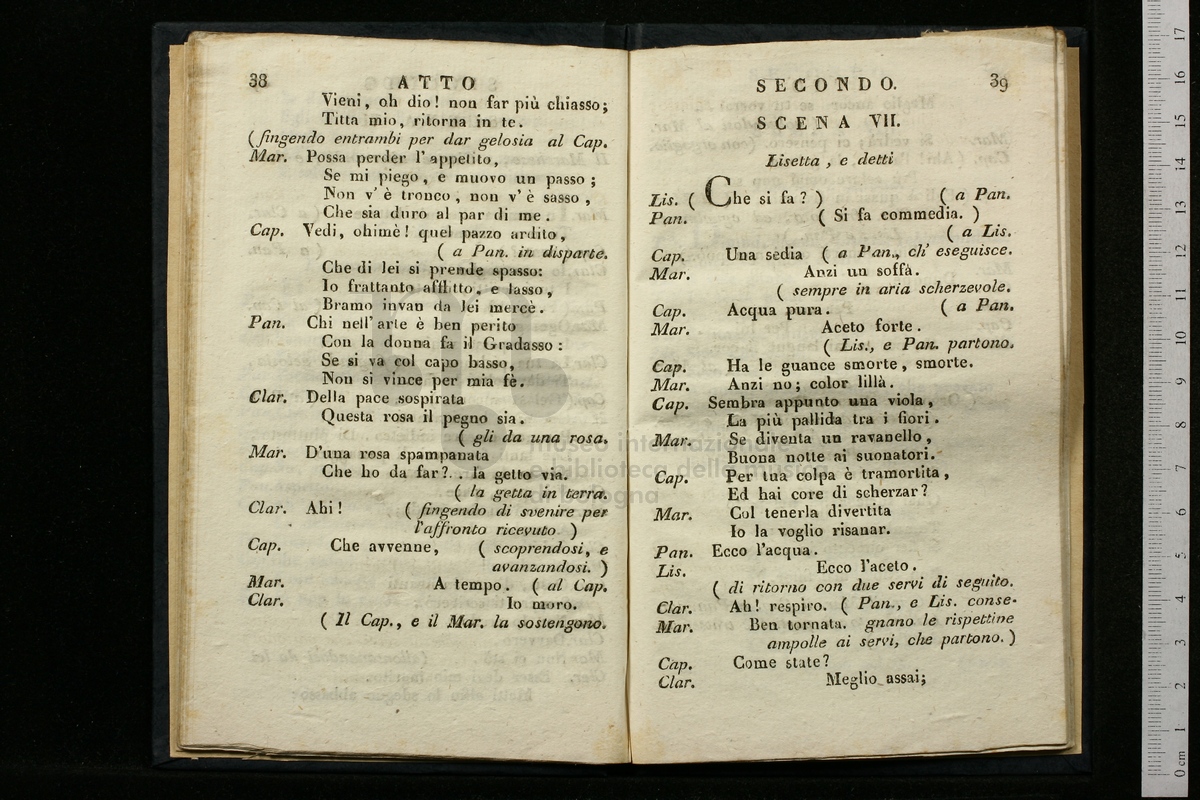 38 ATTO
Vieni, oh dio! non far più chiasso;
Titta mio, ritorna in te.
(fingendo entrambi per dar gelosia al Cap.
Mar. Possa perder l'appetito,
Se mi piego, e muovo un passo;
Non v'è tronco, non v'è sasso,
Che sia duro al par di me.
Cap. Vedi, ohimè! quel pazzo ardito,
( a Pan. in disparte.
Che di lei si prende spasso:
Io frattanto afflitto, e lasso,
Bramo invan da lei mercè.
Pan. Chi nell'arte è ben perito
Con la donna fa il Gradasso:
Se si va col capo basso,
Non si vince per mia fè.
Clar. Della pace sospirata
Questa rosa il pegno sia.
( gli da una rosa.
Mar. D'una rosa spampanata
Che ho da far?.. la getto via.
( la getta in terra.
Clar. Ahi! ( fingendo di svenire per
l'affronto ricevuto )
Cap. Che avvenne, ( scoprendosi, e
avanzandosi. )
Mar. A tempo. ( al Cap.
Clar. Io moro.
( Il Cap., e il Mar. la sostengono.
SECONDO. 39
SCENA VII.
Lisetta, e detti
Lis. ( Che si fa? ) ( a Pan.
Pan. ( Si fa commedia. )
( a Lis.
Cap. Una sedia ( a Pan., ch'eseguisce.
Mar. Anzi un soffà.
( sempre in aria scherzevole.
Cap. Acqua pura. ( a Pan.
Mar. Aceto forte.
( Lis., e Pan. partono.
Cap. Ha le guance smorte, smorte.
Mar. Anzi no; color lillà.
Cap. Sembra appunto una viola,
La più pallida tra i fiori.
Mar. Se diventa un ravanello,
Buona notte ai suonatori.
Cap. Per tua colpa è tramortita,
Ed hai core di scherzar?
Mar. Col tenerla divertita
Io la voglio risanar.
Pan. Ecco l'acqua.
Lis. Ecco l'aceto.
( di ritorno con due servi di seguito.
Clar. Ah! respiro. ( Pan., e Lis. conse-
Mar. Ben tornata. gnano le rispettine
ampolle ai servi, che partono. )
Cap. Come state?
Clar. Meglio assai;
museo internazionale
e biblioteca della musica
di bologna
0 cm 1 2 3 4 5 6 7 8 9 10 11 12 13 14 15 16 17